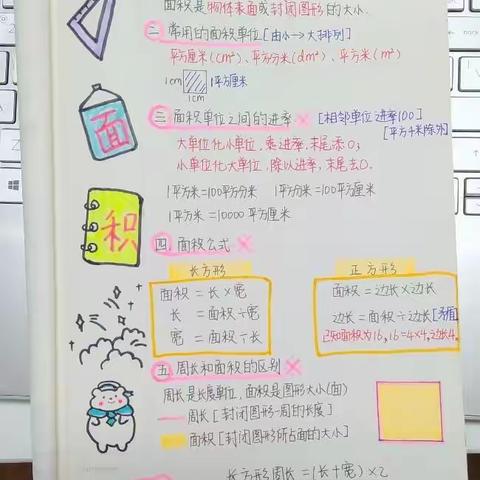 面积是物体表面或封闭图形的大小.
二 常用的面积单位 [由小→大排列]
平方厘米(cm²)、平方分米(dm²)、平方米(m²)
1cm 1平方厘米
1cm
面
三 面积单位之间的进率 [相邻单位进率100]
[平方千米除外]
大单位化小单位,乘进率,末尾添0;
小单位化大单位,除以进率,末尾去0.
1平方米=100平方分米 1平方分米=100平方厘米
1平方米=10000平方厘米
积
四 面积公式
长方形
面积=长×宽
长=面积÷宽
宽=面积÷长
正方形
面积=边长×边长
边长=面积÷边长[矛盾]
已知面积为16,16=4×4,边长4.
五 周长和面积的区别
周长是长度单位,面积是图形大小(面)
周长[封闭图形一周的长度]
面积[封闭图形所占面的大小]
长方形周长=(长+宽)×2